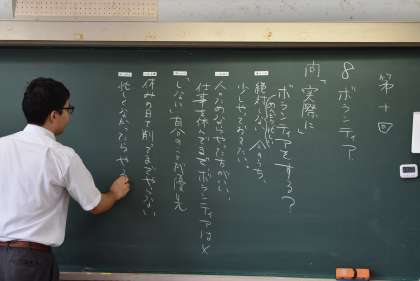 第十回
8 ボランティア
問「実際に」
ボランティアをする？
絶対しない
少しやっておきたい。
人のためならやった方がいい。
仕事を休んでまでボランティアは×
しない 自分のことが優先
休みの日を削ってまでやらない
忙しくなかったらやる